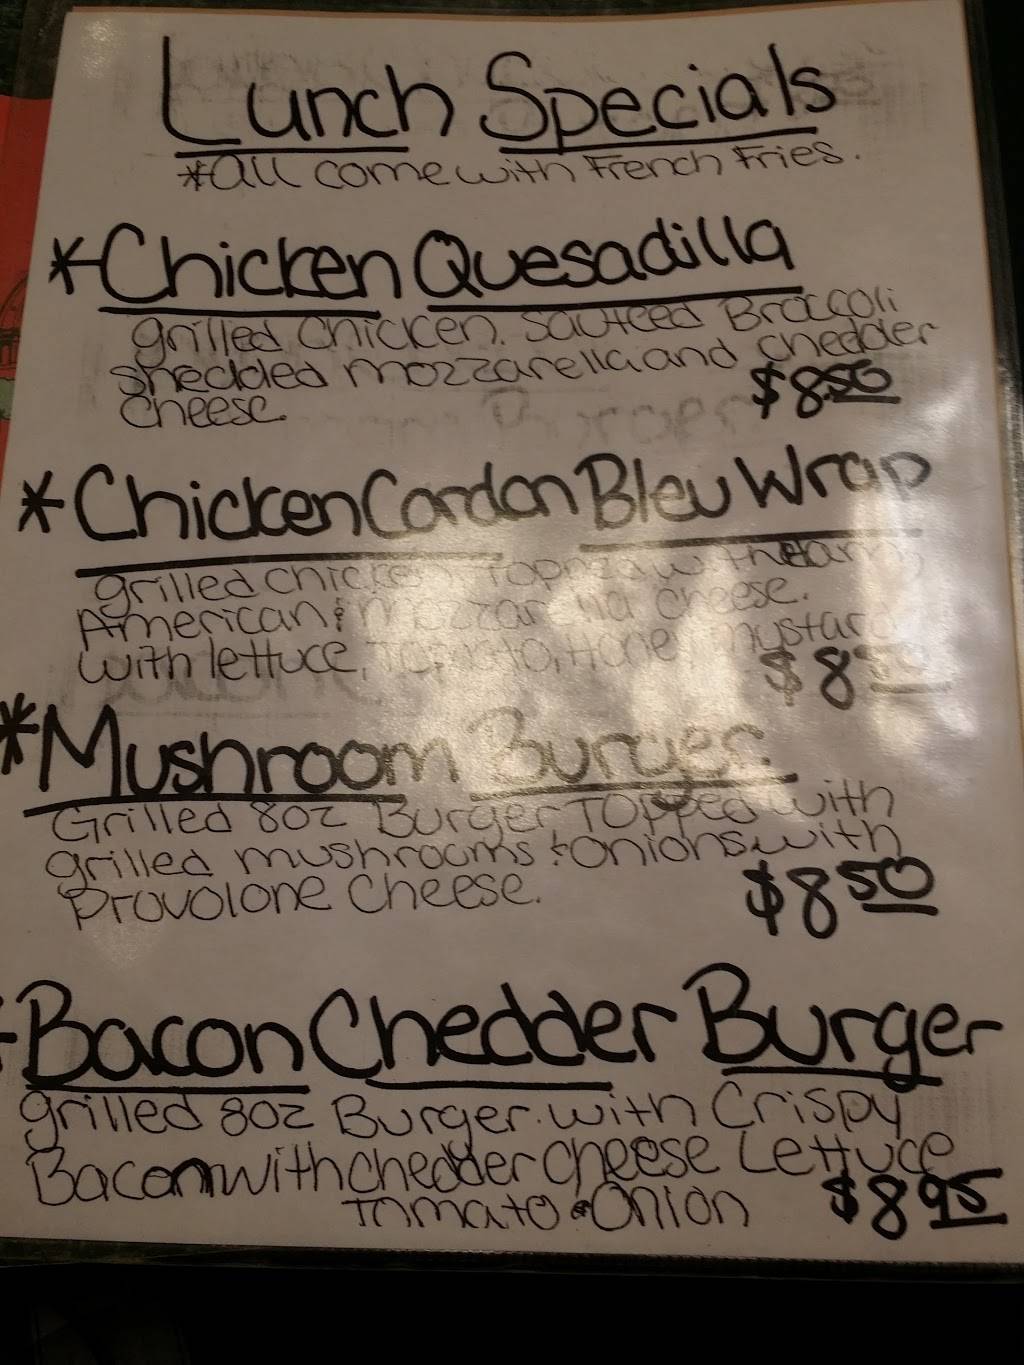 Lunch Specials
*All come with French Fries.
*Chicken Quesadilla
grilled chicken. sauteed Broccoli
shedded mozzarella and chedder
cheese. $8.50
*Chicken Cordon Bleu Wrap
grilled chicken Topped with Ham,
American & mozzarella cheese.
with lettuce, Tomato, Honey mustard
$8
*Mushroom Burger
Grilled 8oz Burger Topped with
grilled mushrooms & onions with
Provolone cheese. $8 50
Bacon Chedder Burger
grilled 8oz Burger. with Crispy
Bacon with chedder cheese Lettuce
tomato Onion $8 95